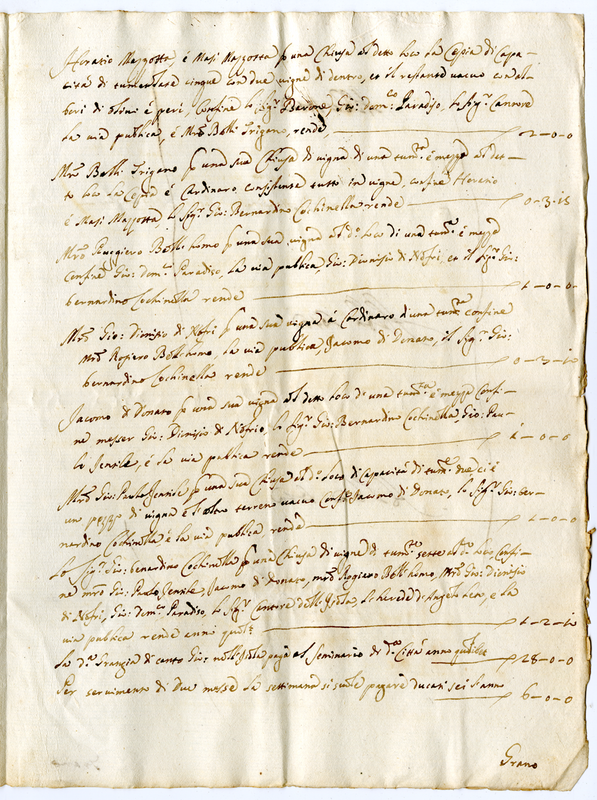 Horatio Mazzotta, é Masi Mazzotta p una Chiusa al detto loco la Copia di Capa-
cità di tumulate cinque con due vigne di dentro, et il restante vacuo con al-
beri di olivi é peri, Confine lo Sig.r Barone Gio: Dom.co Paradiso, lo Sig.r Cantore
la via publica, é M.ro Batt: Trigano, rende 2-0-0
M.ro Batt: Trigano p una sua Chiusa di vigna di una tum.ta é mezza al det-
to loco la Copia é Cardinaro, consistente tutto in vigna, confine Horatio
é Masi Mazzotta lo Sig.r Gio: Bernardino Cochinella rende 0-3-15
M.ro Ruggiero Bell: homo p una sua vigna al d.o loco di una tum.ta é mezza
Confine Gio: Dom.co Paradiso, la via publica, Gio: Dionisio di Nofri, et il Sig.r Gio:
bernardino Cochinella rende 1-0-0
M.ro Gio: Dionisio di Nofri p una sua vigna á Cardinaro di una tum.ta confine
M.ro Rogiero Bell'homo, la via publica, Jacomo di Donato, il Sig.r Gio:
bernardino Cochinella rende 0-3-10
Jacomo di Donato p una sua vigna al detto loco di una tum.ta é mezza Confi-
ne messer Gio: Dionisio di Nofrio, lo Sig.r Gio: Bernardino Cochinella, Gio: Pau-
lo Jentile, é la via publica rende 1-0-0
M.ro Gio: Paulo Jentile p una sua Chiusa al d.o loco di Capacità di tum.te due ci é
un pezzo di vigna é l'altro terreno vacuo Conf.e Jacomo di Donato, lo Sig.r Gio: ber-
nardino Cochinella é la via publica rende 1-0-0
Lo Sig.r Gio: benardino Cochinella p una Chiusa di vigna di tum.te sette al d.o loco Confi-
ne mro Gio: Paulo Jentile, Jacomo di donato, mro Rogiero Bell'homo, M.ro Gio: Dionisio
di Nofri, Gio: Dom.co Paradiso, lo Sig.r Cantore dell'Isola, l'herede di Angelo, é la
via publica rende anni 1-2-10
La d.a Grangia di Santo Gio: nell'Isola paga al Seminario di d.a Città anno quolibet 28-0-0
Per servimento di Due messe la settimana si suole pagare ducati sei l'anno 6-0-0
Grano